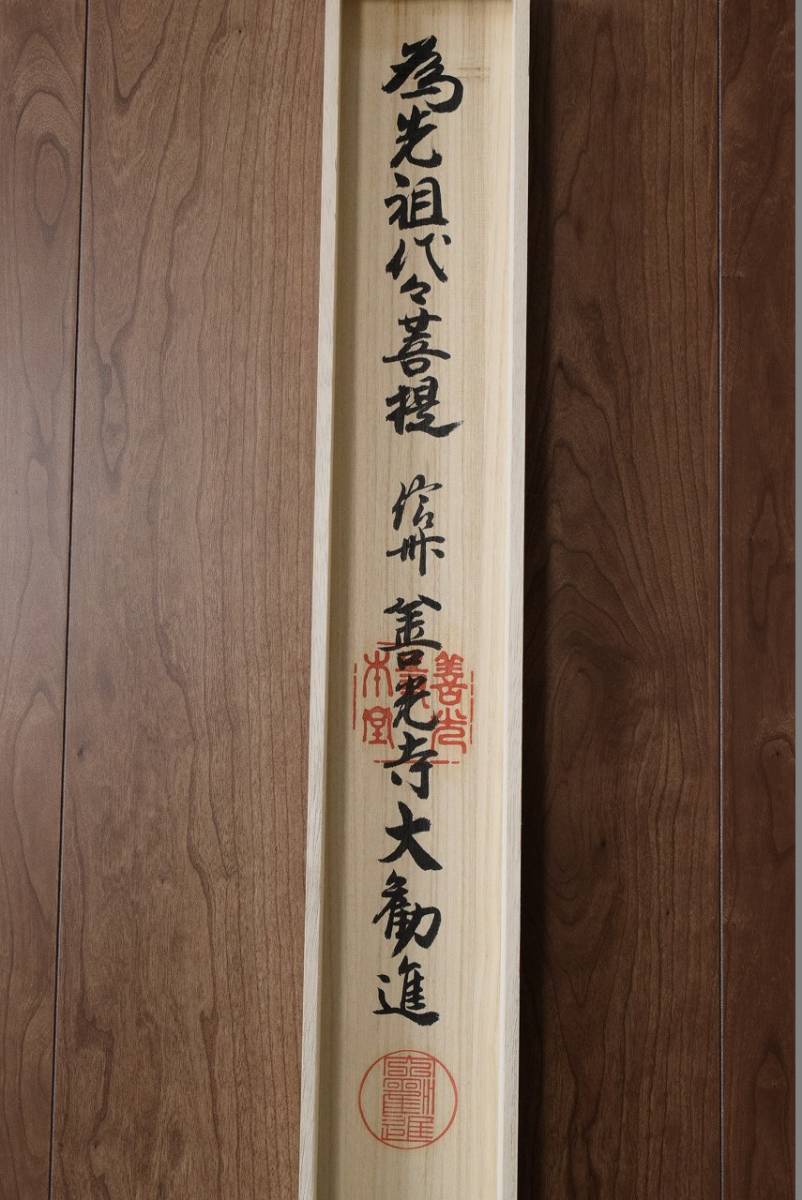 為先祖代々菩提 信州 善光寺大勧進
善光
本堂